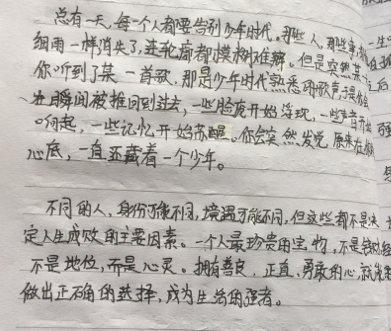 总有一天,每一个人都要告别少年时代。那些人,那些事,
细雨一样消失了,连轮廓都模糊难辨。但是突然某
你听到了某一首歌,那是少年时代熟悉的歌,于是你会
在瞬间被推回到过去,一些脸庞开始浮现,一些声音开始
响起,一些记忆开始苏醒。你会突然发觉,原来在你
心底,一直还藏着一个少年。
不同的人,身份可能不同,境遇可能不同,但这些都不是决
定人生成败的主要因素。一个人最珍贵的宝物,不是钱财
不是地位,而是心灵。拥有善良、正直、勇敢的心,就能
做出正确的选择,成为生活的强者。